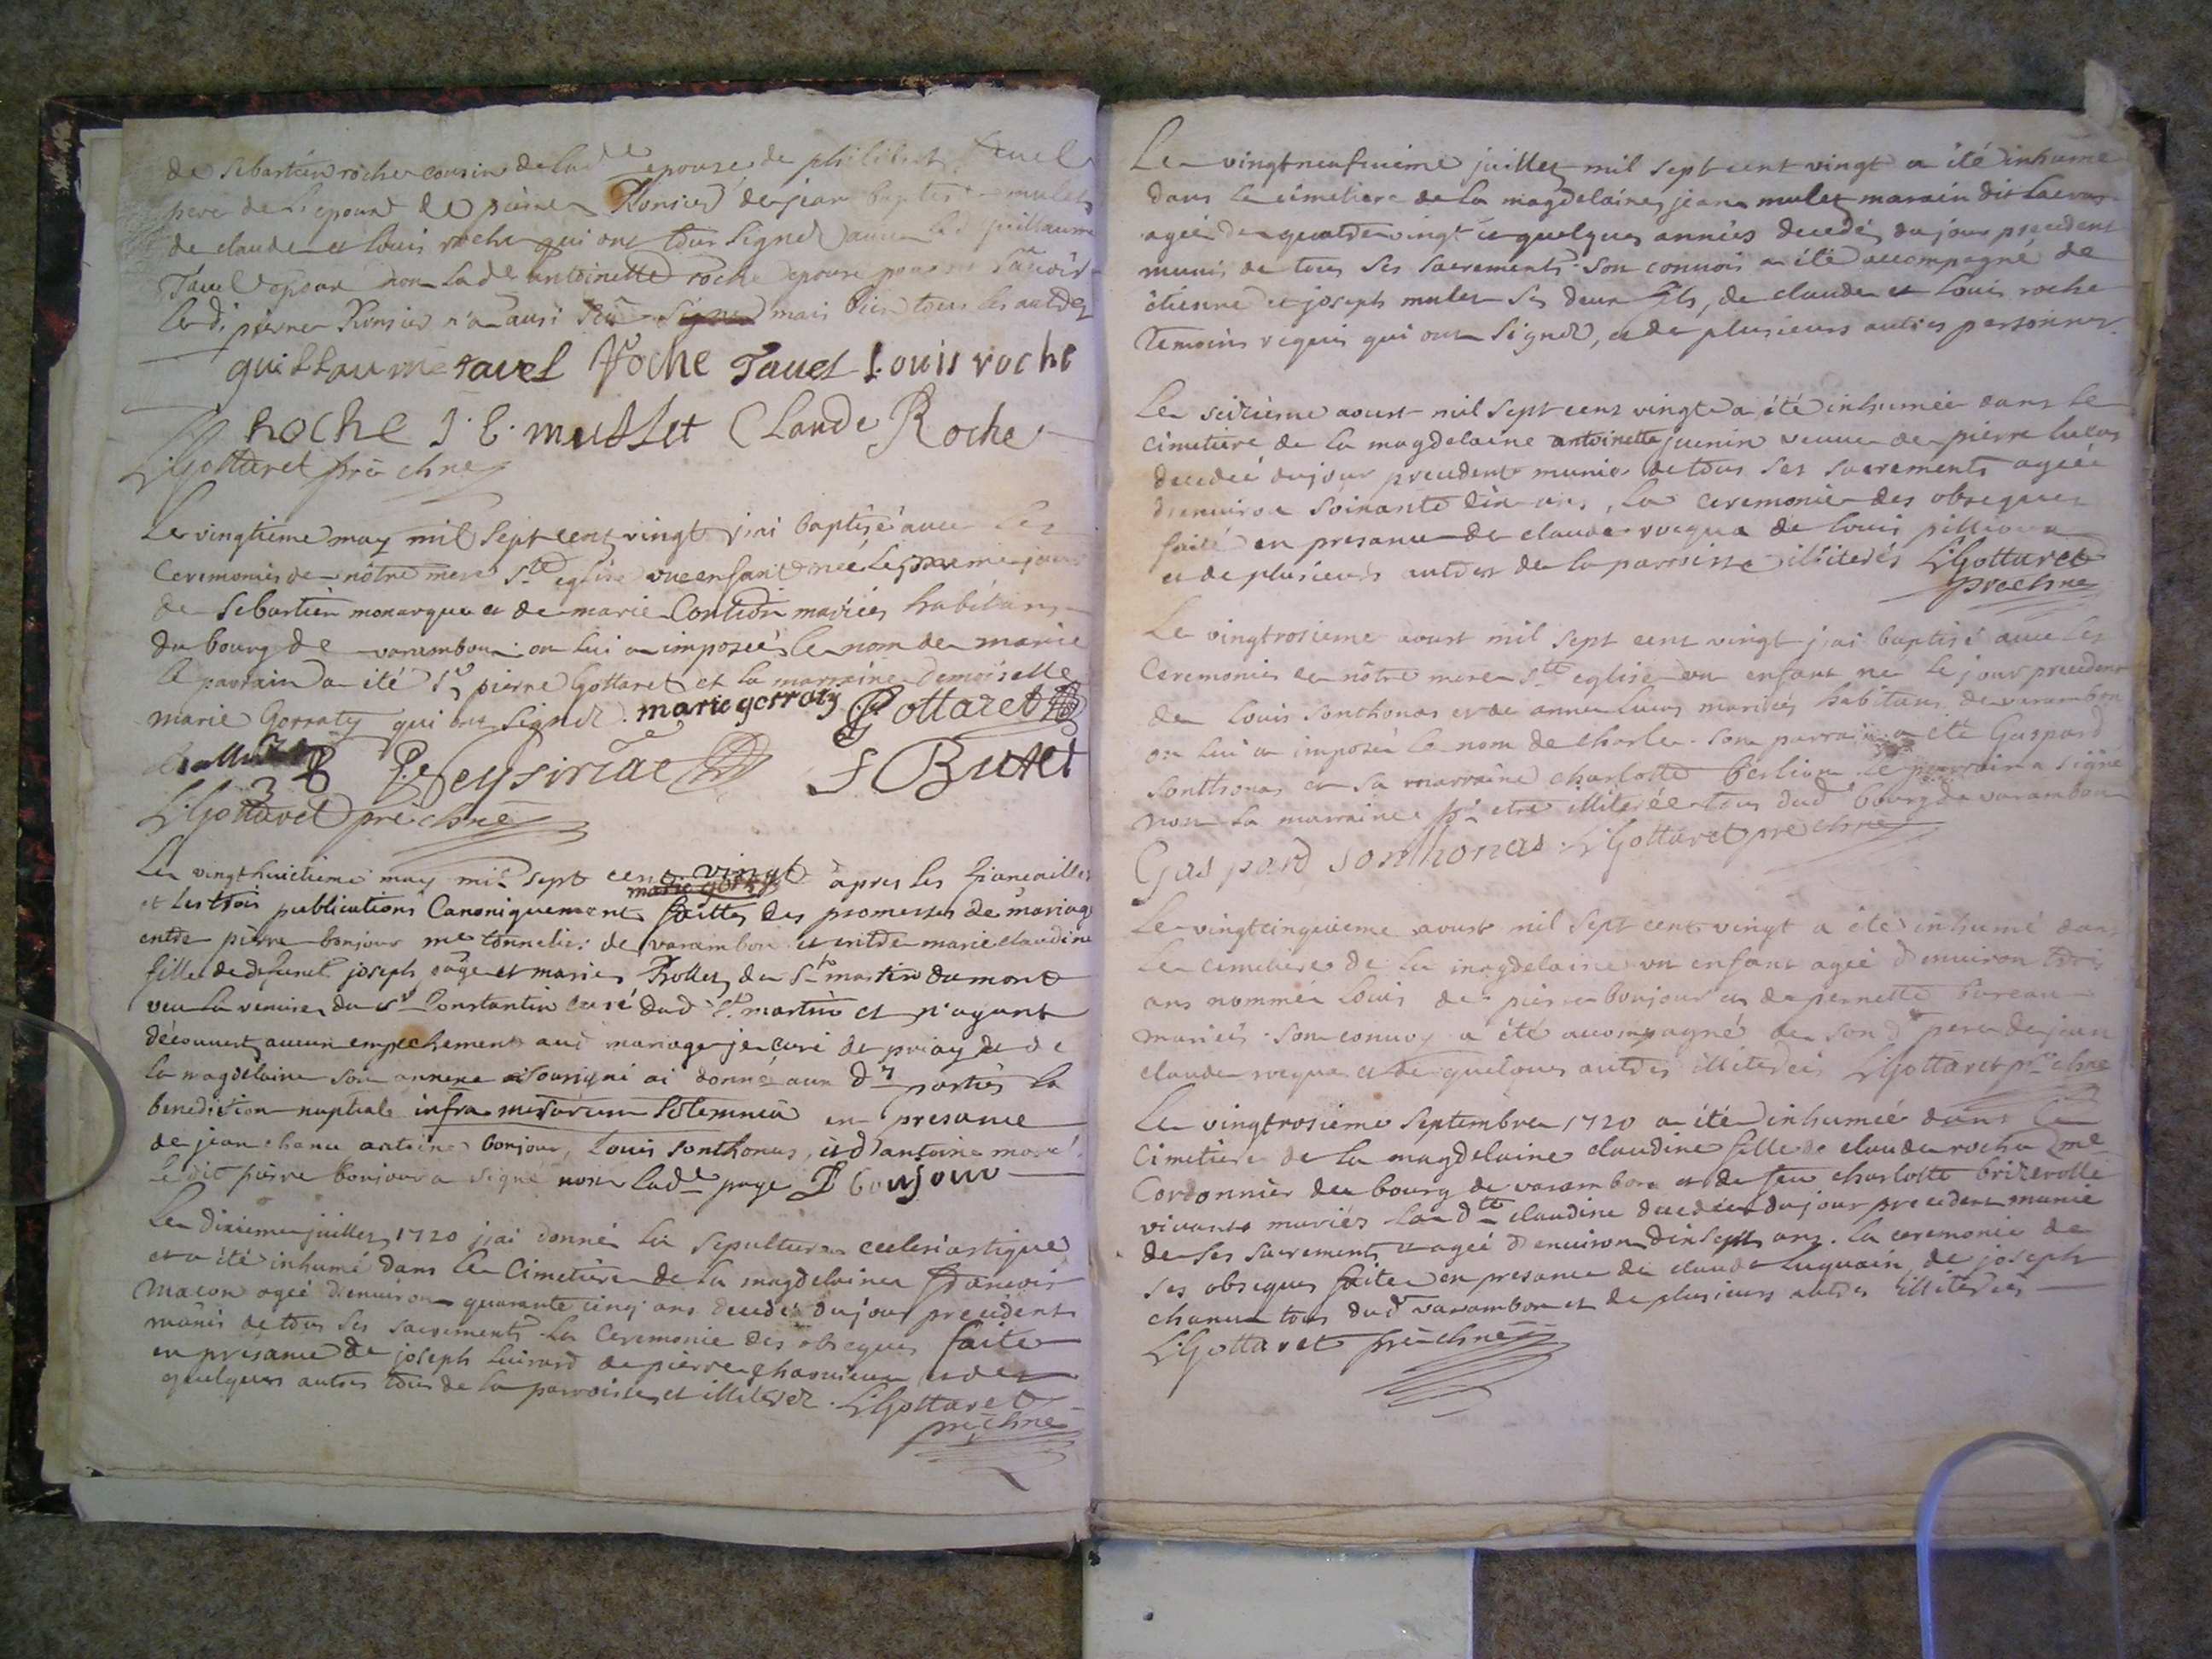 de sebastien roche cousin de lad.e epouse de philibert tavel
pere de l'epoux de pierre Ronsier de jean baptiste mulet
de claude et louis roche qui ont tous signé avec led guillaume
Tavel epoux non lad.e antoinette roche epouse pour ne savoir
led. pierre Ronsier n'a aussi mais bien tous les autres
guillaume tavel Roche Tavel Louis roche
Roche J. B. mullet Claude Roche
L. Gottaret
Le vingtieme may mil sept cent vingt j'ai baptisé avec les
Ceremonies de nôtre mere ste eglise une enfant née le meme jour
de Sebastien monarque et de marie mariés habitans
du bourg de varambon on lui a imposée le nom de marie
le parrain a été Sr pierre Gottaret et la marraine demoiselle
marie Gorraty qui ont signé. marie gorraty Gottaret
Butet
L. Gottaret
Le vingthuictieme may mil sept cent vingt apres les fiancailles
et les trois publications Canoniquement faittes des promesses de mariage
entre pierre bonjour me tonnelier de varambon et entre marie claudine
fille de defunct joseph page et marie Rollet de St martin du mont
veu la remise du Sr Constantin curé dud St martin et n'ayant
découvert aucun empechement aud mariage je curé de priay et de
la magdelaine son annexe soussigné ai donné aux d. parties la
benediction nuptiale infra missarum solemnia en presance
de jean chanu antoine bonjour, Louis sonthonas, et d'antoine morel
ledit pierre bonjour a signé non lad.e page P bonjour
Le dixieme juillet 1720 j'ai donné la sepulture ecclesiastique
et a été inhumé dans le Cimetiere de la magdelaine francois
macon agé d'environ quarante cinq ans decedé du jour precedent
munis de tous ses sacrements la Ceremonie des obseques faite
en présance de joseph de pierre et de
quelques autres tous de la parroisse et illiterés. L. Gottaret
Le vingtneufvieme juillet mil sept cent vingt a été inhumé
dans le cimetiere de la magdelaine jean mulet marain dit
agé de quatre vingt et quelques années decedé du jour precedent
munis de tous ses sacrements son convois a été accompagné de
étienne et joseph mulet ses deux fils, de claude et louis roche
temoins requis qui ont signé, et de plusieurs autres personnes.
Le seizieme aoust mil sept cent vingt a été inhumée dans le
cimetiere de la magdelaine antoinette juenin veuve de pierre lucas
decedée du jour precedent munie de tous ses sacrements agée
d'environ soixante dix ans, la ceremonie des obseques
faite en presance de claude rocqua de louis
et de plusieurs autres de la parroisse illiterés L. Gottaret
Le vingtrosieme aoust mil sept cent vingt j'ai baptisé avec les
Ceremonies de nôtre mere ste eglise un enfant né le jour precedent
de Louis Sonthonas et de anne lucas mariés habitans de varambon
on lui a imposé le nom de Charle. son parrain a été Gaspard
Sonthonas et sa marraine charlotte le parrain a signé
non la marraine etre illiterée tous dud bourg de varambon
Gaspard sonthonas. L. Gottaret
Le vingtcinquieme aoust mil sept cent vingt a été inhumé dans
le cimetiere de la magdelaine un enfant agée d'environ trois
ans nommée Louis de pierre bonjour et de pernette bureau
mariés. Son convoy a été accompagné de son d pere de jean
claude rocqua et de quelques autres illiterés L. Gottaret
Le vingtrosieme septembre 1720 a été inhumée dans le
Cimetiere de la magdelaine claudine fille de claude roche me
Cordonnier du bourg de varambon et de feu charlotte
vivants mariés lad.te claudine decedée du jour precedent munie
de ses sacrements et agée d'environ dixsept ans. la ceremonie de
ses obseques faite en presance de claude de joseph
chanu tous dud varambon et de plusieurs autres illiterés
L. Gottaret